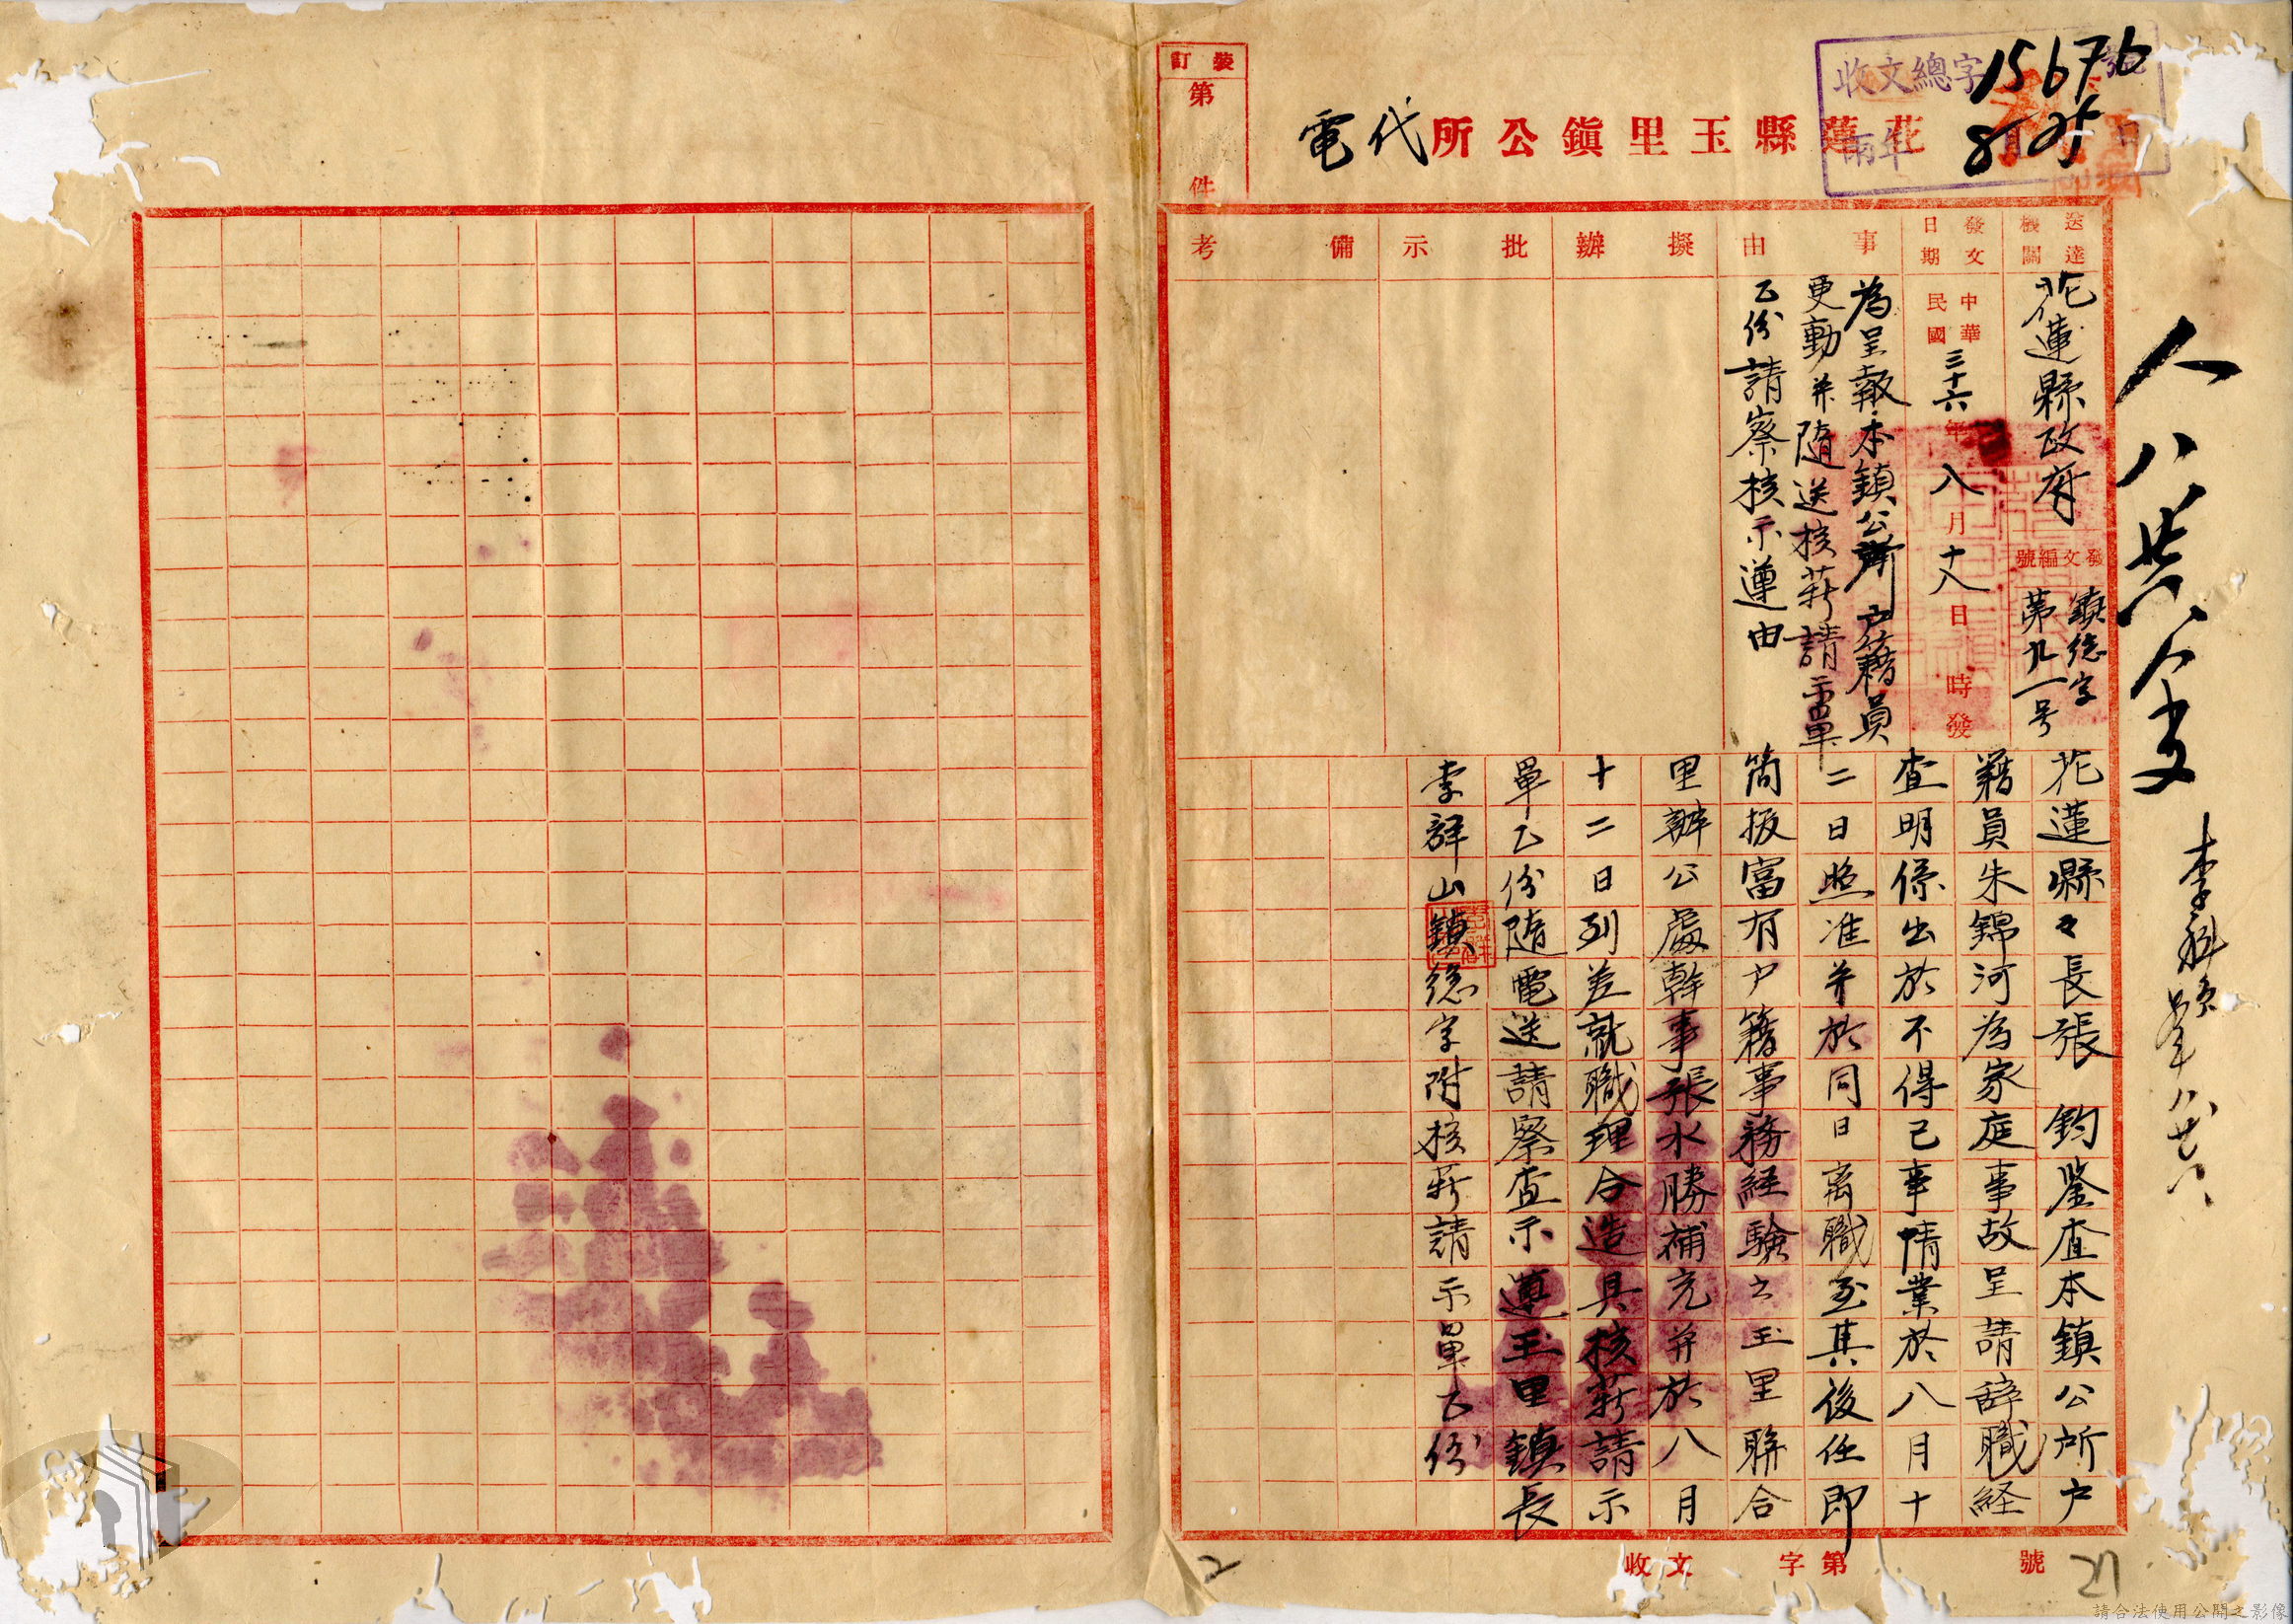 裝訂
第
件
花蓮縣玉里鎮公所代電
收文總字 15676 號
8 25
送達機關
花蓮縣政府
發文編號
鎮總字
第九一号
發文日期
中華民國三十六年八月十八日 時發
事由
為呈報本鎮公所户籍員
更動并隨送核薪請示單
乙份請察核示遵由
擬辦
批示
備考
花蓮縣々長張 鈞鑒查本鎮公所户
籍員朱錦河為家庭事故呈請辞職経
查明係出於不得已事情業於八月十
二日照准并於同日离職至其後任即
简拔富有户籍事務経驗之玉里聯合
里辦公處幹事張水勝補充并於八月
十二日列差就職理合造具核薪請示
單乙份隨電送請察查示遵玉里鎮長
李詳山鎮總字附核薪請示單乙份
收文 字第 號
人八廿六
2
27
請合法使用公開之影像